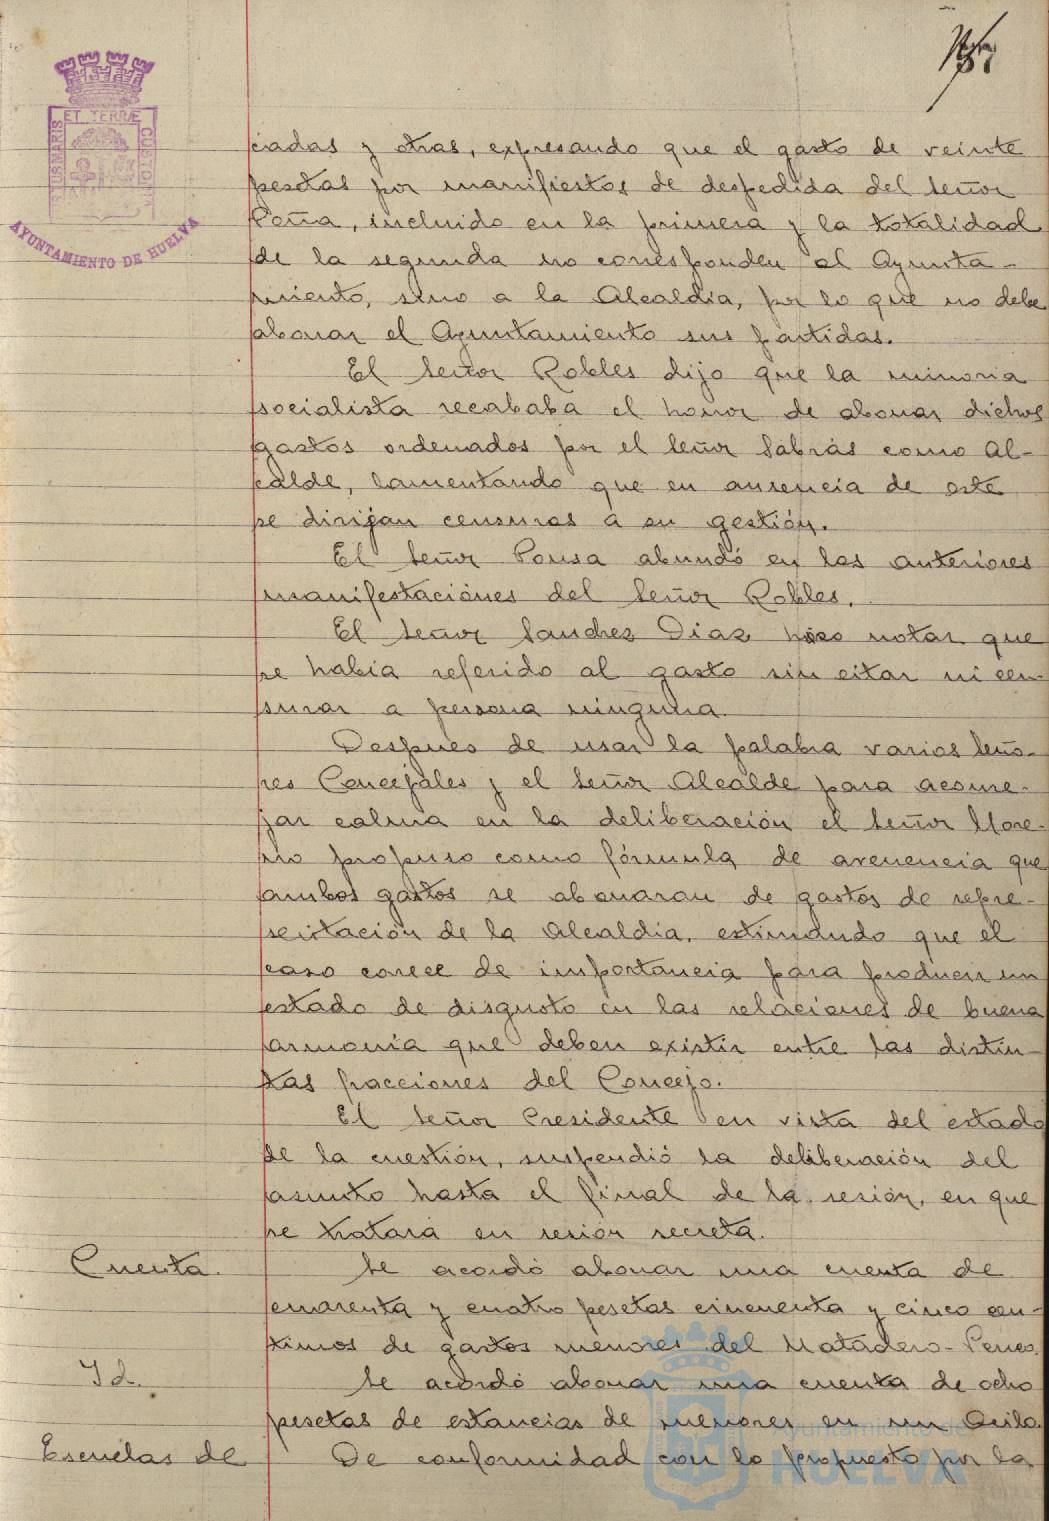 ET TERRÆ
AYUNTAMIENTO DE HUELVA
ciadas y otras, expresando que el gasto de veinte
pesetas por manifiestos de despedida del Señor
Peña, incluido en la primera y la totalidad
de la segunda no corresponden al Ayunta-
miento, sino a la Alcaldia, por lo que no debe
abonar el Ayuntamiento sus partidas.
El Señor Robles dijo que la minoria
socialista recababa el honor de abonar dichos
gastos ordenados por el Señor Sabrás como Al-
calde, lamentando que en ausencia de este
se dirijan censuras a su gestión.
El Señor Ponsa abundó en las anteriores
manifestaciónes del Señor Robles.
El Señor Sanchez Diaz hizo notar que
se habia referido al gasto sin citar ni cen-
surar a persona ninguna.
Despues de usar la palabra varios Seño-
res Concejales y el Señor Alcalde para aconse-
jar calma en la deliberación el Señor More-
no propuso como fórmula de avenencia que
ambos gastos se abonaran de gastos de repre-
sentación de la Alcaldia, estimando que el
caso carece de importancia para producir un
estado de disgusto en las relaciones de buena
armonia que deben existir entre las distin-
tas fracciones del Concejo.
El Señor Presidente en vista del estado
de la cuestión, suspendió la deliberación del
asunto hasta el final de la sesión, en que
se tratará en sesión secreta.
Cuenta. Se acordó abonar una cuenta de
cuarenta y cuatro pesetas cincuenta y cinco cen-
timos de gastos menores del Matadero-Peneo.
Id. Se acordó abonar una cuenta de ocho
pesetas de estancias de menores en un Asilo.
Escuelas de De conformidad con lo propuesto por la
Ayuntamiento de
HUELVA